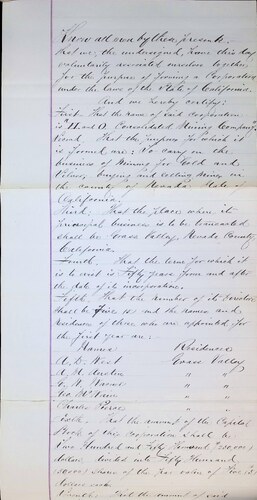 Know all men by these presents
that we, the undersigned, have this day
voluntarily associated ourselves together
for the purpose of forming a Corporation
under the laws of the State of California.
And we hereby certify:
First. That the name of said corporation
is "Consolidated Mining Company"
Second. That the purpose for which it
is formed are: To carry on the
business of Mining for Gold and
Silver, buying and selling Mines in
the county of Nevada State of
California.
Third. That the place where its
principal business is to be transacted
shall be Grass Valley, Nevada County
California.
Fourth. That the term for which it
is to exist is Fifty years from and after
the date of its incorporation.
Fifth. That the number of its Directors
shall be Five and the names and
residences of those who are appointed for
the first year are:
Names Residence
Grass Valley
" "
" "
" "
Charles " "
Sixth. That the amount of the Capital
Stock of this corporation shall be
Two Hundred and Fifty Thousand
dollars, divided into Fifty Thousand
shares of the par value of Five
dollars each
That the amount of said